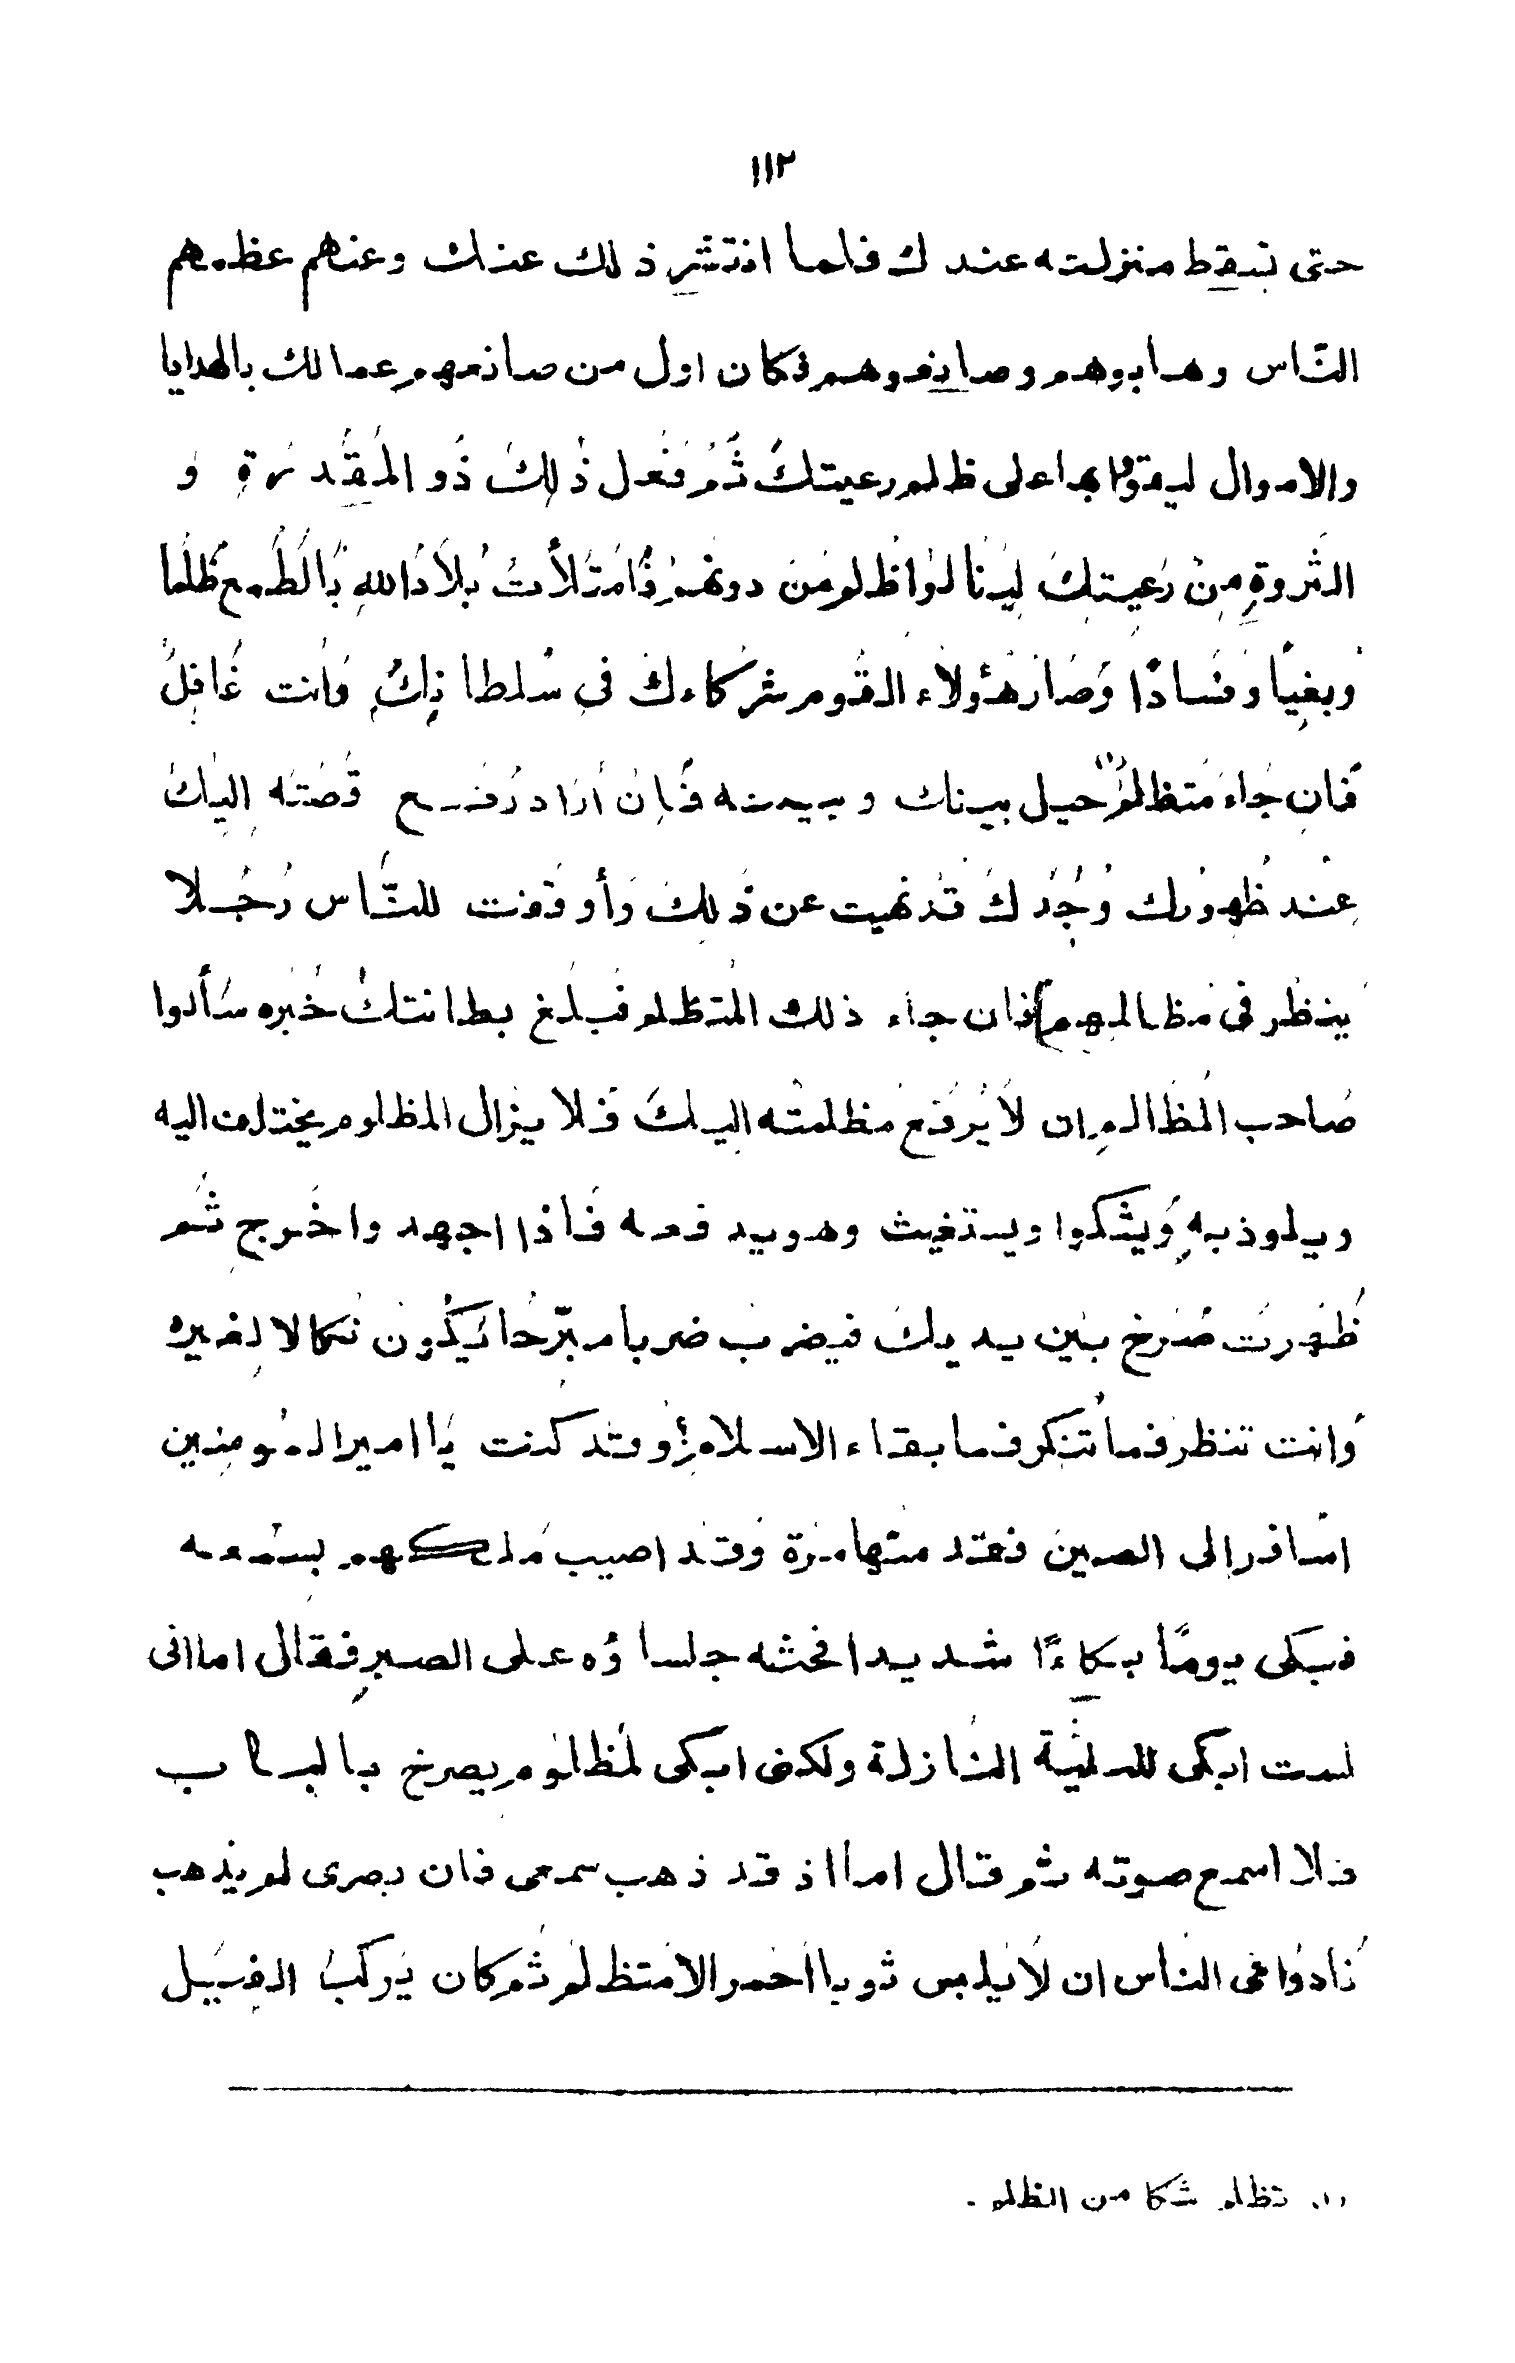 ١١٢
حتى تسقط منزلته عندك فلما انتشر ذلك عنك وعنهم عظمهم
النّاس وهابوهم وصانعوهم فكان اول من صانعهم عمالك بالهدايا
والاموال ليقووا بها على ظلم رعيتك ثُمَّ فَعل ذٰلِكَ ذَو المَقدرة و
الثروةِ مِنْ رَعيتِكَ لِيَنَالوا ظلم مَن دونهم فَامتَلأت بُلادُ اللهِ بالطَّمع ظُلما
وبغيًا وفَسادًا وَصَارَ هٰؤلاء القَوم شركاءك في سُلطانِكَ وأنت غَافِلٌ
فَان جَاءَ مُتَظلمٌ حيل بينك وبينه فَإن أرَاد رَفع قصته اليك
عِند ظُهورك وَجَدَك قَد نَهيت عن ذٰلِكَ وَأوقفت للنّاس رَجُلا
ينظُر في مَظالمهم فان جاء ذلك المتظلم فبلغ بطانتك خبره سَألوا
صَاحب المَظالم ان لا يَرفع مظلمته اليك فلا يزال المظلوم يختلف اليه
ويلوذ بهِ وَيشكوا ويستغيث وهو يدفعه فاذا اجهد واخرج ثم
ظَهرت صَرخ بَين يديك فيضرب ضربا مبرّحا يَكون نكالا لِغيره
وانت تنظر فما تنكر فما بقاء الاسلام؟ وقد كنت يَا امير المؤمنين
اسافر الى الصين فقدمتها مرة وقد اصيب ملكهم بسمعه
فبكى يومًا بكاءًا شديدا فحثه جلساؤه على الصبر فقال اما انى
لست ابكى للبلية النازلة ولكنى ابكى لمظلوم يصرخ بالباب
فلا اسمع صوته ثم قال اما اذ قد ذهب سمعى فان بصرى لم يذهب
نَادوا فى الناس ان لا يلبس ثوبا احمر الا متظلم ثم كان يَركب الفيل
(١) تظلم شكا من الظلم .